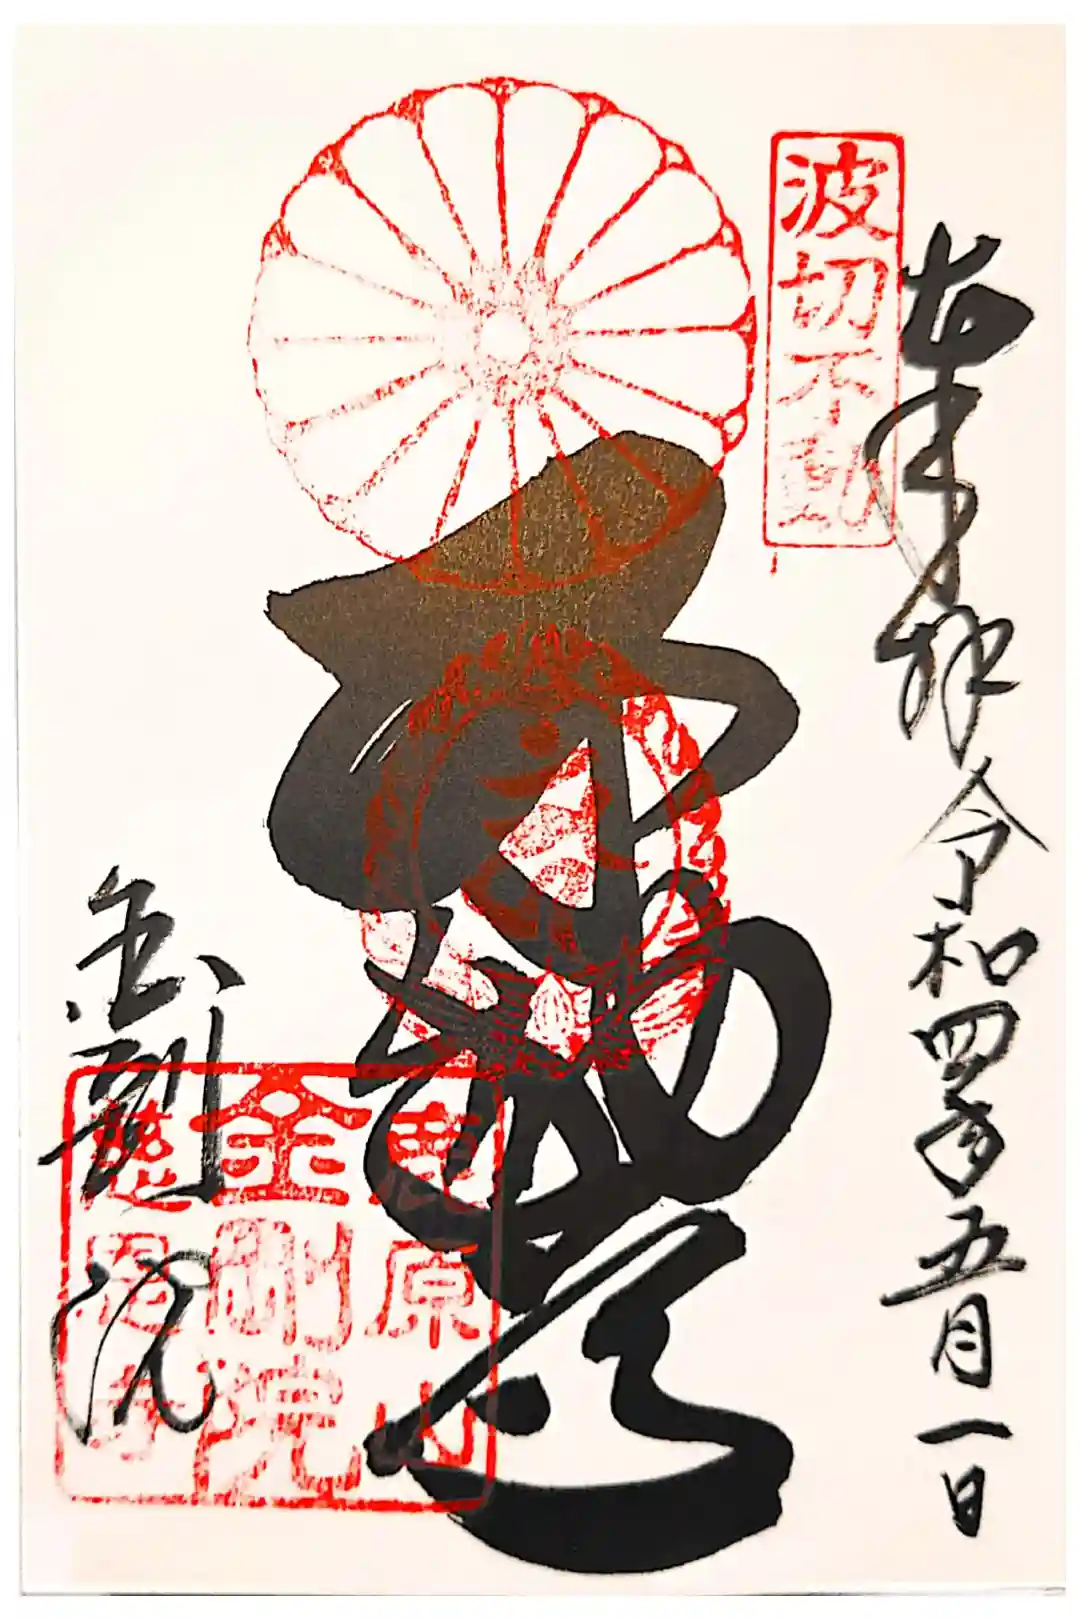 波切不動
奉拝 令和四年五月一日
金剛院
鹿原山
金剛院
慈恩寺